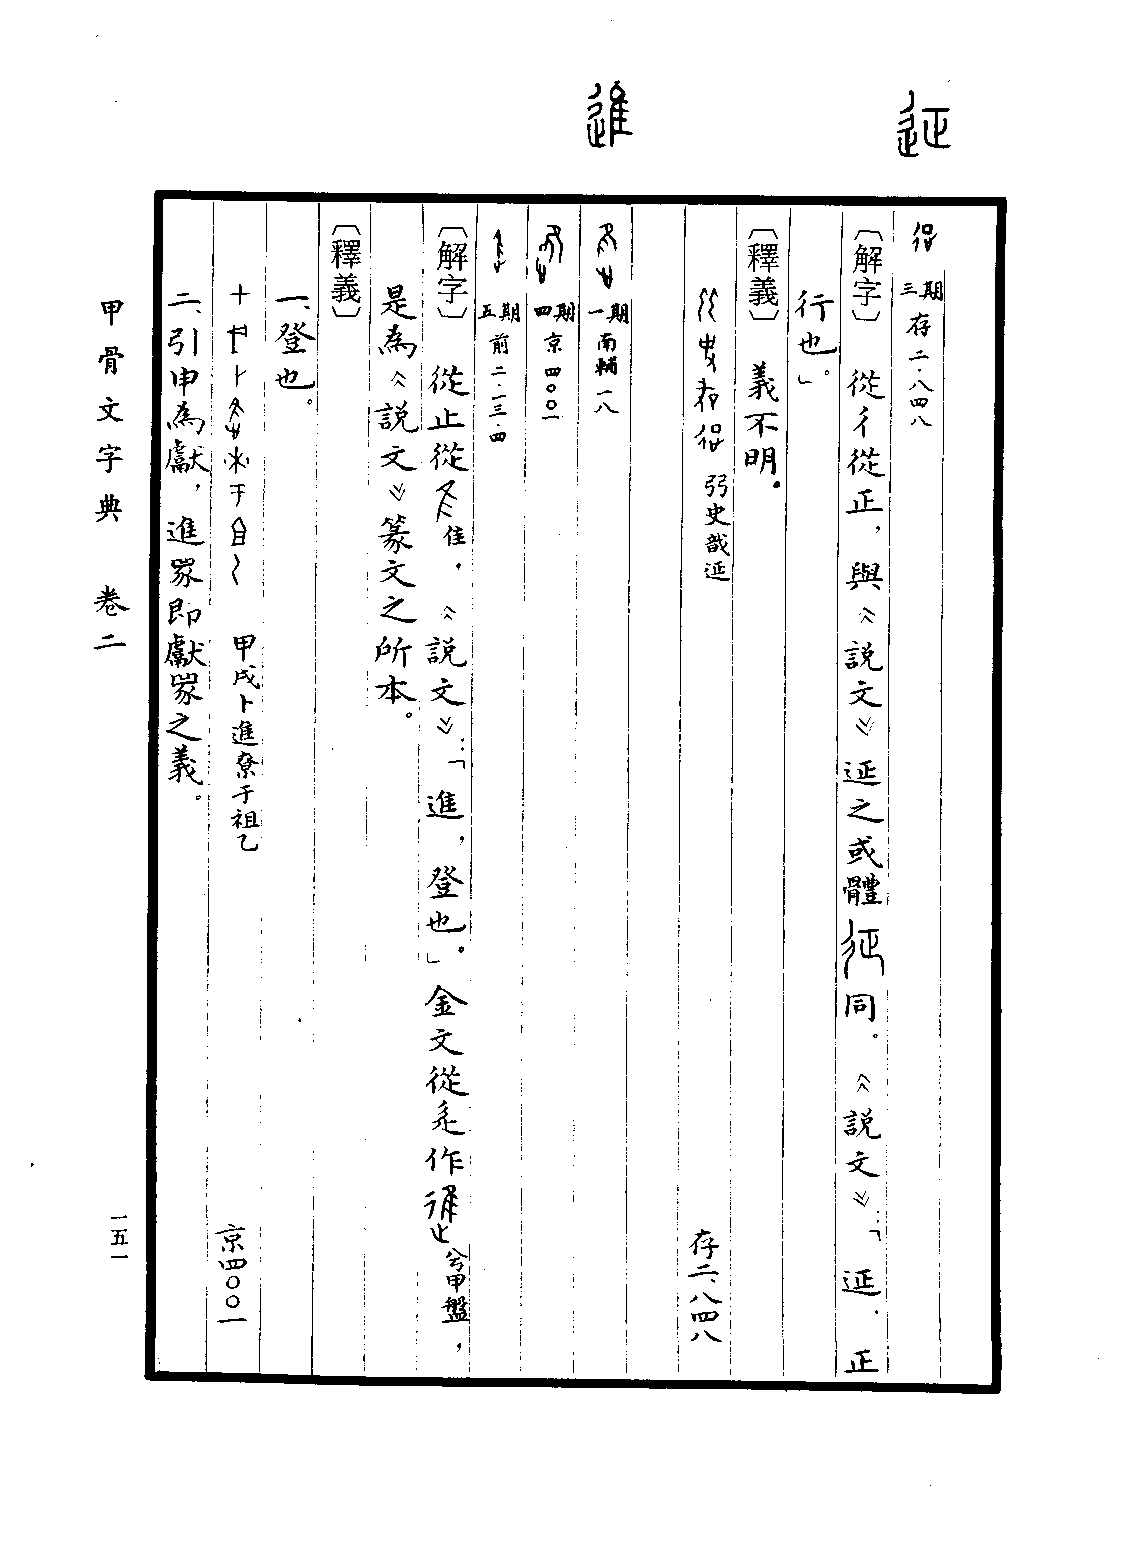 延
進
三期
存二·八四八
〔解字〕 從彳從正，與《說文》延之或體征同。《說文》：「延，正
行也。」
〔釋義〕 義不明。
弜史哉延 存二、八四八
一期
南輔一八
四期
京四〇〇一
五期
前二·一三·四
〔解字〕 從止從隹，《說文》：「進，登也。」金文從辵作 兮甲盤，
是為《說文》篆文之所本。
〔釋義〕
一、登也。
甲戌卜進尞于祖乙 京四〇〇一
二、引申為獻，進眾即獻眾之義。
甲骨文字典 卷二
一五一